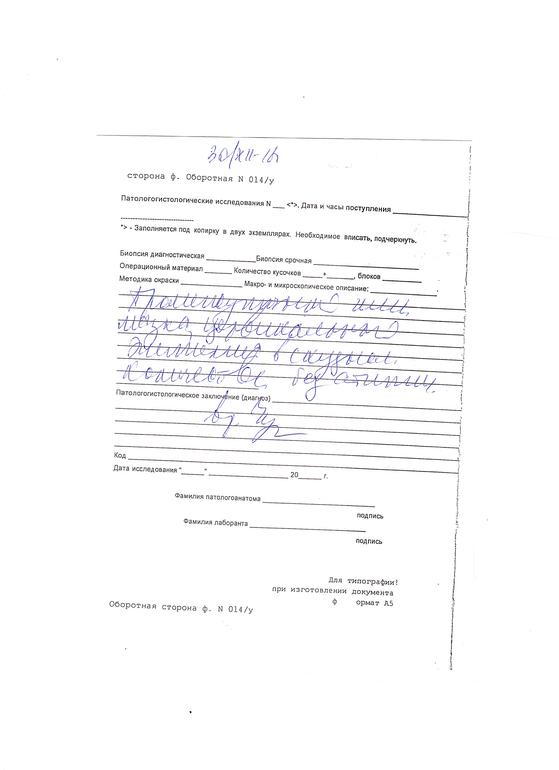 30/XII-16
сторона ф. Оборотная N 014/у
Патологогистологические исследования N ___ <*>. Дата и часы поступления ___
*> - Заполняется под копирку в двух экземплярах. Необходимое вписать, подчеркнуть.
Биопсия диагностическая ___ Биопсия срочная ___
Операционный материал ___ Количество кусочков ___+___, блоков ___
Методика окраски ___ Макро- и микроскопическое описание: ___
Промежуточный тип
мазка, цервикального
эпителия в скудном
количестве, без атипии.
Патологогистологическое заключение (диагноз) ___
Код ___
Дата исследования "___" ___ 20___ г.
Фамилия патологоанатома ___
подпись
Фамилия лаборанта ___
подпись
Для типографии!
при изготовлении документа
ф ормат А5
Оборотная сторона ф. N 014/у